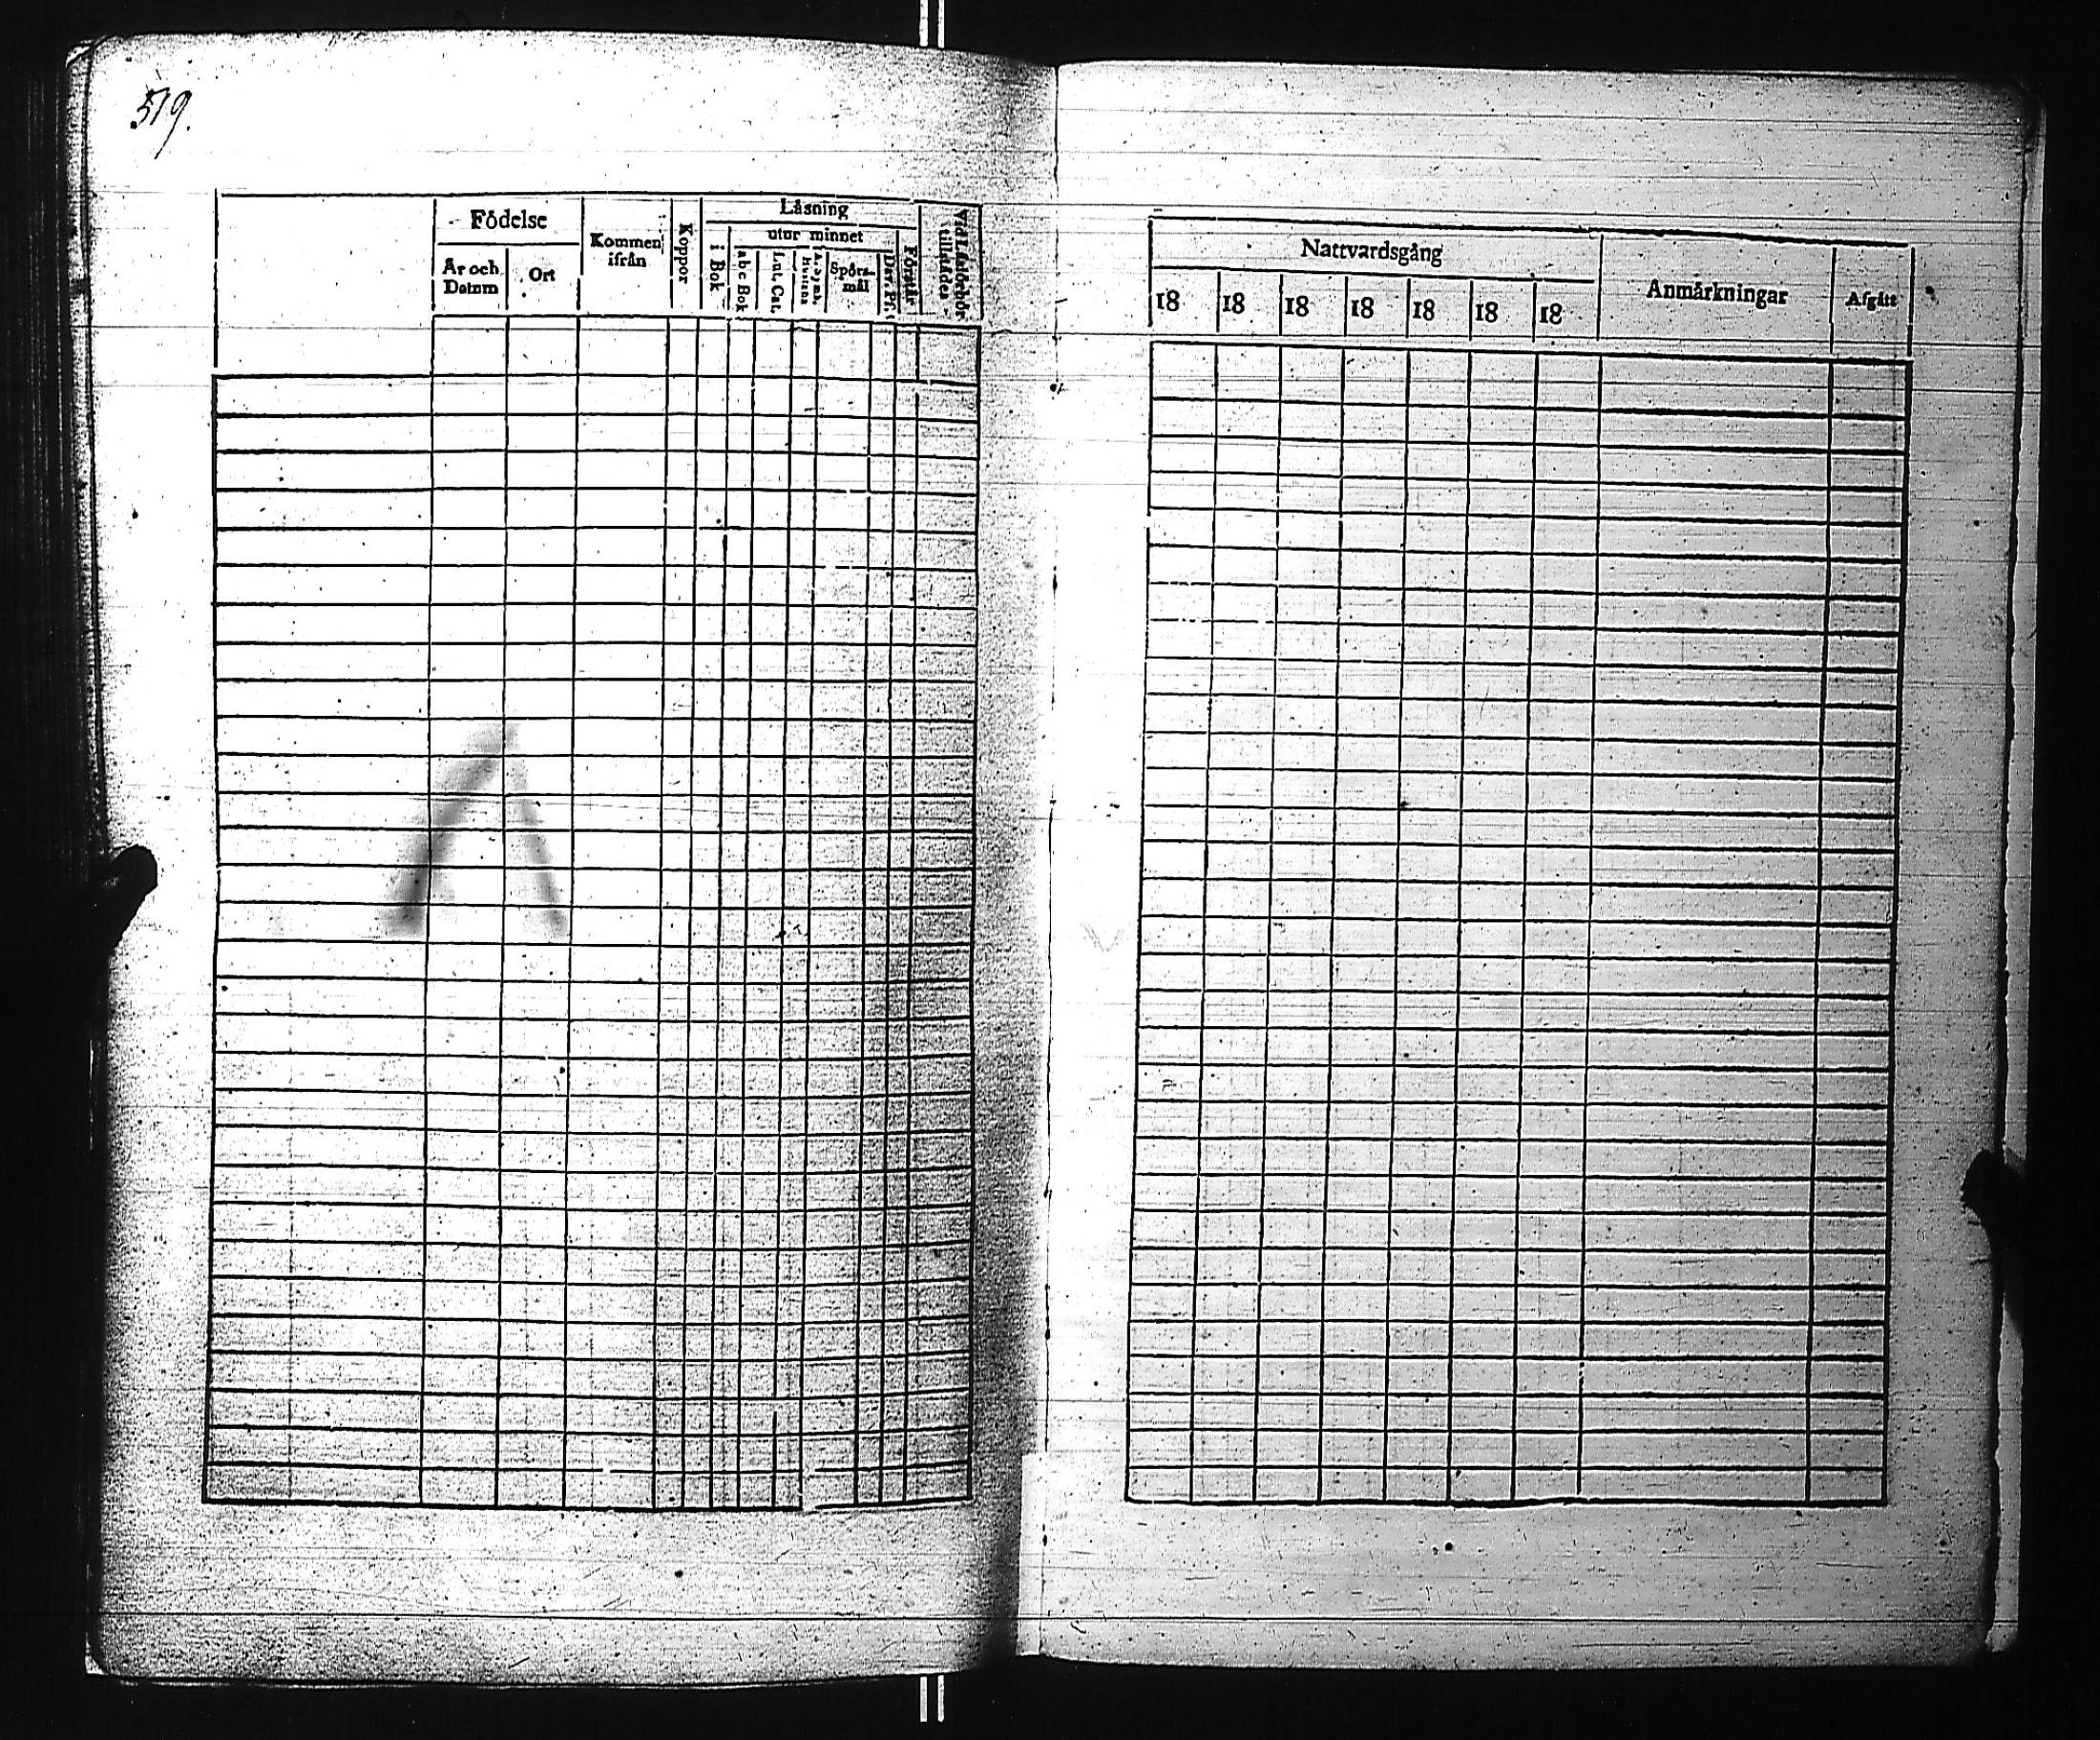 519.
Födelse
År och Datum
Ort
Kommen ifrån
Koppor
Läsning
utur minnet
i Bok
abc Bok
Lut. Cat.
Spörsmål
Dav. Ps.
Förstår
tillstädes
Nattvardsgång
18 18 18 18 18 18 18
Anmärkningar
Afgått